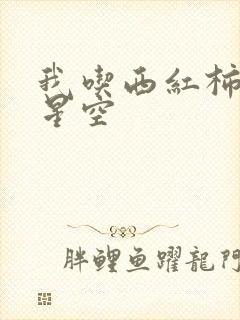 我喫西紅柿
星空
胖鲤鱼躍龍門